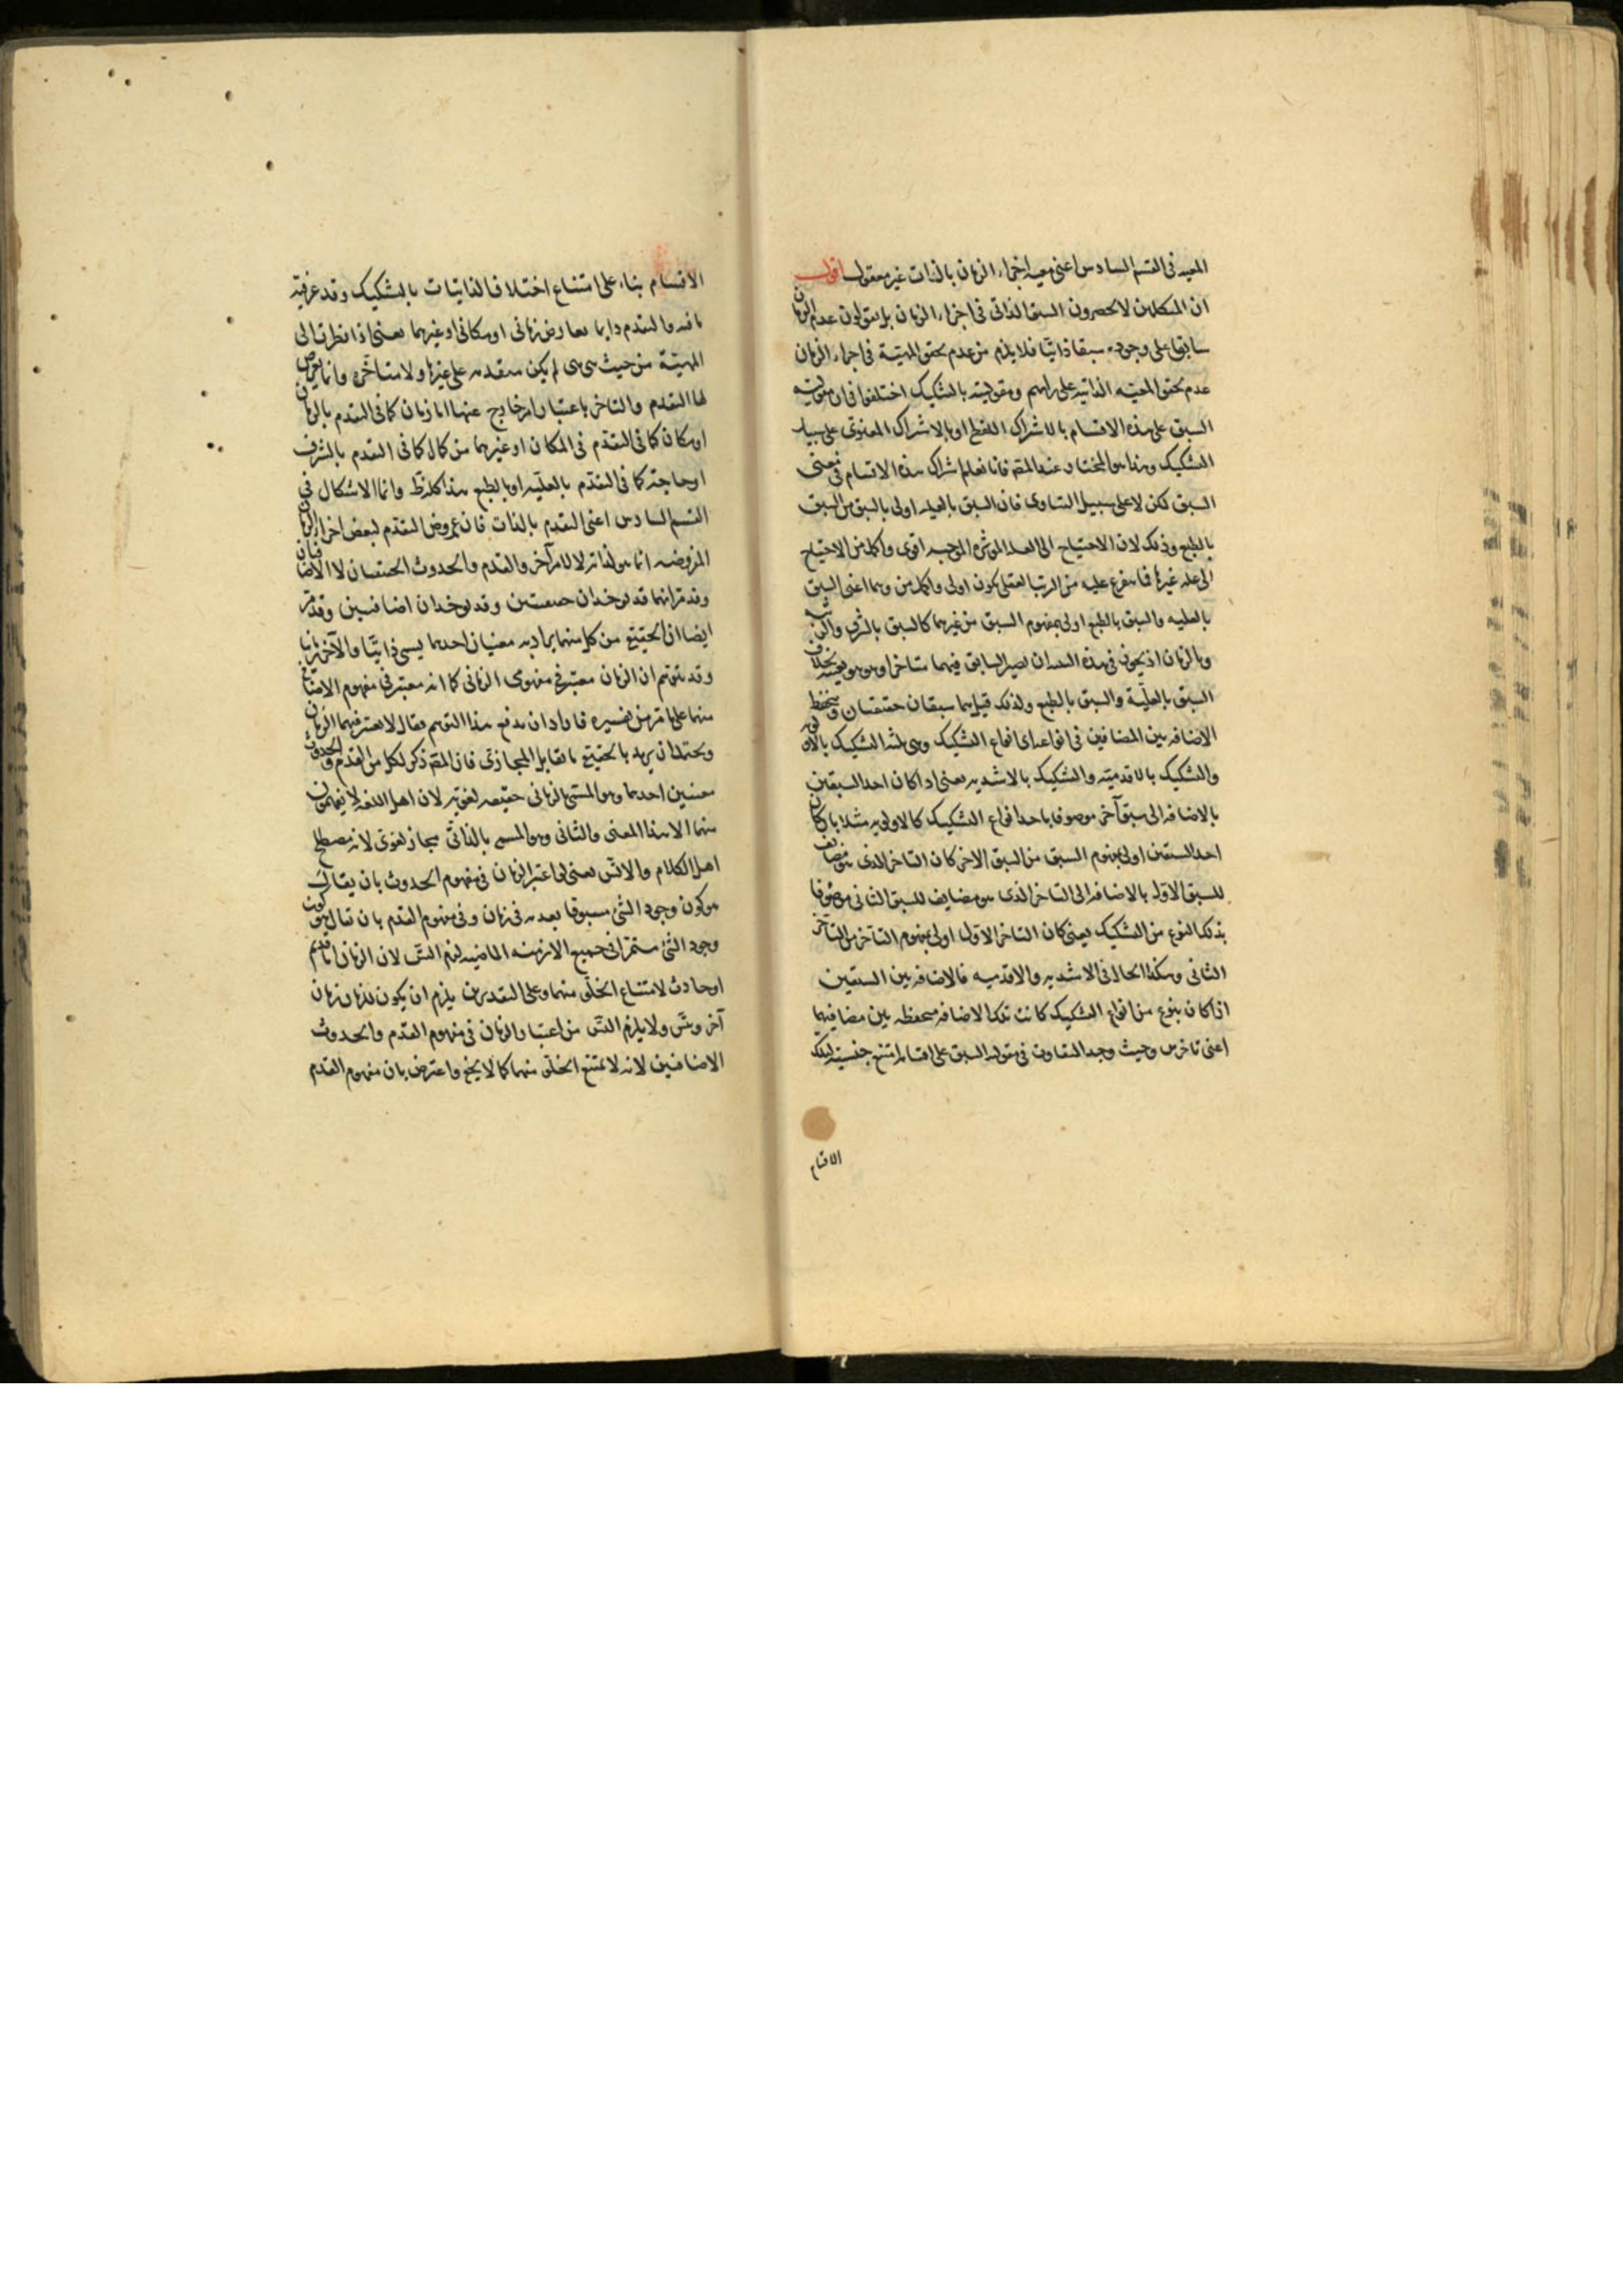 المعيه فى القسم السادس اعنى معيه اجزاء الزمان بالذات غير معقول اقول
ان المتكلمين لا يحصرون السبق الذاتى فى اجزاء الزمان بل يقولون عدم الزمان
سابق على وجوده سبقا ذاتيا فلا يلزم من عدم تحقق المعيّة فى اجزاء الزمان
عدم تحقق المعيه الذاتيه على رايهم ومقوليته بالتشكيك اختلفوا فى ان مقولية
السبق على هذه الاقسام بالاشراك اللفظى او بالاشراك المعنوى على سبيل
التشكيك وهذا هو المختار عند المص فانا نعلم اشراك هذه الاقسام فى معنى
السبق لكن لا على سبيل التساوى فان السبق بالعليه اولى بالسبق من السبق
بالطبع وذلك لان الاحتياج الى العله المؤثره الموجبه اقوى واكمل من الاحتياج
الى عله غيرها فما يتفرع عليه من الترتب العقلى يكون اولى واكمل من وهما اعنى السبق
بالعليه والسبق بالطبع اولى بمفهوم السبق من غيرهما كالسبق بالشرف والرتبة
وبالزمان اذ يجوز فى هذه الثلثه ان يصير السابق فيهما متاخرا وهو هو بعينه بخلاف
السبق بالعليّة والسبق بالطبع ولذلك قيل هما سبقان حقيقيان وتنحفظ
الاضافه بين المضافين فى انواعه اى انواع التشكيك وهى ثلثه التشكيك بالاولويه
والتشكيك بالاقدميّه والتشكيك بالاشديه يعنى اذا كان احد السبقين
بالاضافه الى سبق آخر موصوفا باحد انواع التشكيك كالاولويه مثلا بان كان
احد السبقين اولى بمفهوم السبق من السبق الاخر كان التاخر الذى هو مضايف
للسبق الاول بالاضافه الى التاخر الذى هو مضايف للسبق الثانى موصوفا
بذلك النوع من التشكيك يعنى كان التاخر الاول اولى بمفهوم التأخر من التاخر
الثانى وهكذا الحال فى الاشديه والاقدميه فالاضافه بين السبقين
اذا كان بنوع من انواع التشكيك كانت تلك الاضافه منحفظه بين مضافيهما
اعنى تاخرين وحيث وجد التفاوت فى مقولية السبق على اقسامه امتنع جنسيته لتلك
الاقسام
الاقسام بناء على امتناع اختلاف الذاتيات بالتشكيك وقد عرفت
ما فيه والتقدم دايما بعارض زمانى او مكانى او غيرهما يعنى اذا نظرنا الى
المهيّة من حيث هى هى لم يكن متقدمه على غيرها ولا متاخّره وانما يعرض
لها التقدم والتاخر باعتبار امر خارج عنها اما زمان كما فى التقدم بالزمان
او مكان كما فى التقدّم فى المكان او غيرهما من كمال كما فى التقدم بالشرف
او حاجة كما فى التقدّم بالعليّه او بالطبع هذا كله ظ وانما الاشكال فى
القسم السادس اعنى التقدم بالذات فان عروض التقدّم لبعض اجزاء الزمان
المفروضه انما هو لذاته لا لامر آخر والقدم والحدوث الحقيقيان لا الاضافيان
وقد مر انهما قد يوخذان حقيقيين وقد يوخذان اضافيين وقد مر
ايضا ان الحقيقى من كل منهما يراد به معنيان احدهما يسمى ذاتيّا والآخر زمانيا
وقد يتوهم ان الزمان معتبر فى مفهومى الزمانى كما انه معتبر فى مفهوم الاضافى
منهما على ما مر من تفسيره فاراد ان يدفع هذا التوهم فقال لا يعتبر فيهما الزمان
ويحتمل ان يريد بالحقيقى ما يقابل المجازى فان المص ذكر لكل من القدم والحدوث
معنيين احدهما وهو المسمى بالزمانى حقيقه لغويّه لان اهل اللغه لا يفهمون
منهما الا هذا المعنى والثانى وهو المسمى بالذاتى مجاز لغوى لانه مصطلح
اهل الكلام والا لتس يعنى لو اعتبر الزمان فى مفهوم الحدوث بان يقال
هو كون وجود الشئ مسبوقا بعدمه فى زمان وفى مفهوم القدم بان يقال هو كون
وجود الشئ مستمرا فى جميع الازمنه الماضيه لزم التس لان الزمان اما قديم
او حادث لامتناع الخلّو منهما وعلى التقديرين يلزم ان يكون للزمان زمان
آخر وتس ولا يلزم التس من اعتبار الزمان فى مفهوم القدم والحدوث
الاضافيين لانه لا يمتنع الخلّو منهما كما لا يخفى واعترض بان مفهوم القدم